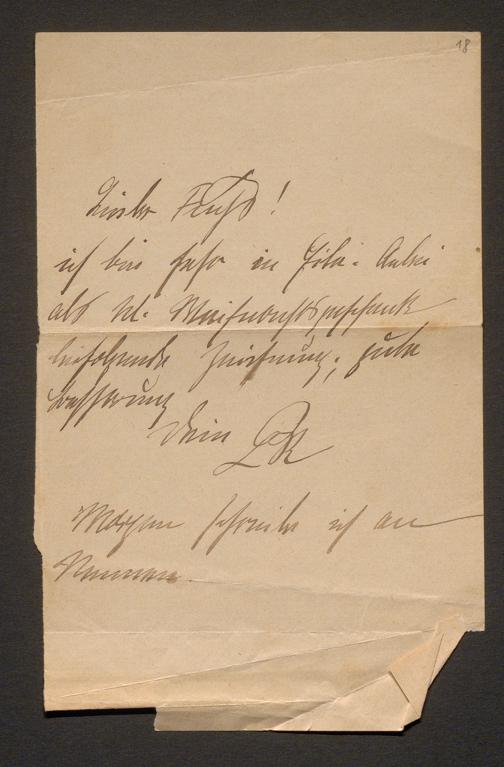 18
Lieber Fuchs!
ich bin sehr in Eile. Anbei
als kl. Weihnachtsgeschenk
beifolgende Zeichnung; gute
Besserung
Dein
Morgen schreibe ich an